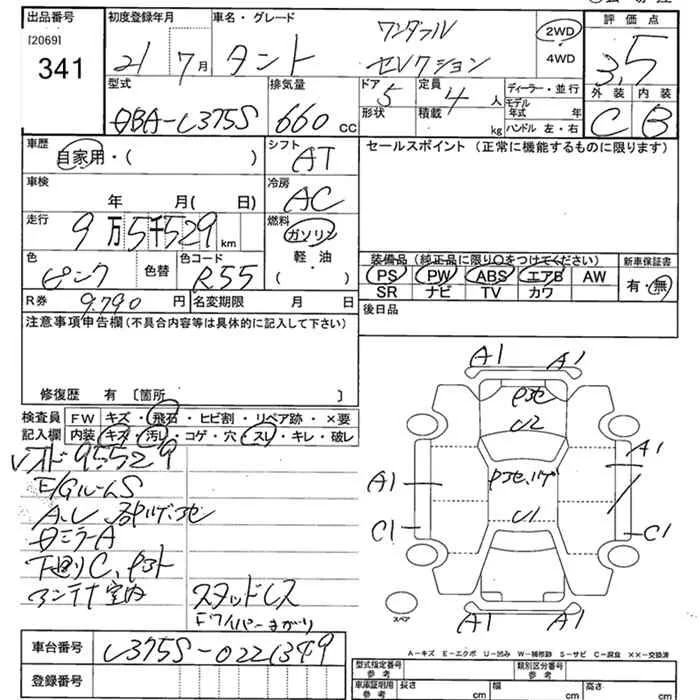 出品番号 初度登録年月 車名・グレード 評価点
[2069]
341
21 7月 タント ワンダフル セレクション 2WD 4WD 3.5
型式 排気量 ドア 定員 ディーラー・並行 外装 内装
DBA-L375S 660cc 5 4人
形状 積載 kg モデル年式 年
ハンドル 左・右
C B
車歴 シフト セールスポイント (正常に機能するものに限ります)
自家用・( ) AT
車検 冷房
年 月( 日) AC
走行 燃料
9万5千529km ガソリン
軽油
( )
色 カラーコード
ピンク 色替 R55
装備品 (純正品に限り○をつけてください) 新車保証書
PS PW ABS エアB AW 有・無
SR ナビ TV カワ
R券 9.790円 名変期限 月 日
後日品
注意事項申告欄(不具合内容等は具体的に記入して下さい)
修復歴 有 〔箇所 〕
検査員 FW キズ・飛石・ヒビ割・リペア跡・×要
記入欄 内装 キズ・汚レ・コゲ・穴・スレ・キレ・破レ
95529
E/GルームS
ミラーA
下廻りC、
アンテナ室内
スタッドレス
Fワイパーまがり
A1 A1
U2
A1 A1
U1
C1 C1
A1 A1
スペア
A-キズ E-エクボ U-凹み W-補修跡 S-サビ C-腐食 ××-交換済
車台番号 L375S-0221349
登録番号
型式指定番号 参考 類別区分番号 参考
車庫証明用 参考 長さ cm 幅 cm 高さ cm